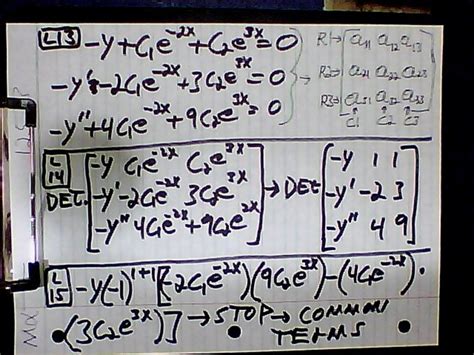 L13 -y+c₁e^-2x+c₂e^3x=0
-y'-2c₁e^-2x+3c₂e^3x=0
-y"+4c₁e^-2x+9c₂e^3x=0
R1→ a₁₁ a₁₂ a₁₃
R2→ a₂₁ a₂₂ a₂₃
R3→ a₃₁ a₃₂ a₃₃
c₁ c₂ c₃
L14
DET. [-y c₁e^-2x c₂e^3x
-y' -2c₁e^-2x 3c₂e^3x
-y" 4c₁e^-2x +9c₂e^3x]
→ DET. [-y 1 1
-y' -2 3
-y" 4 9]
L15 -y(-1)^1+1[(-2c₁e^-2x)(9c₂e^3x)-(4c₁e^-2x)·
·(3c₂e^3x)] → STOP → COMMON
TERMS